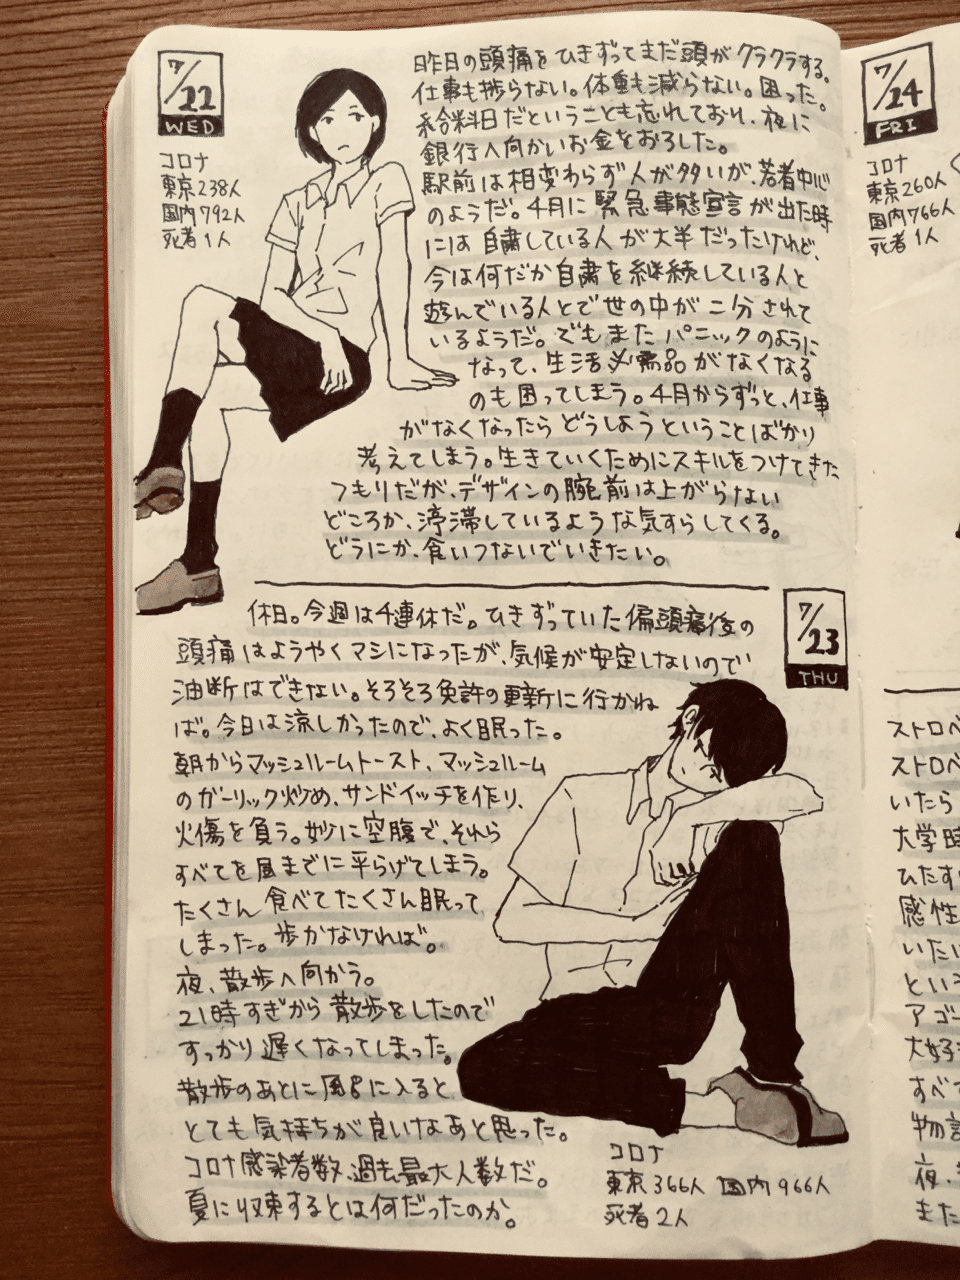 7/22
WED
コロナ
東京238人
国内792人
死者1人
昨日の頭痛をひきずってまだ頭がクラクラする。
仕事も捗らない。体重も減らない。困った。
給料日だということも忘れており、夜に
銀行へ向かいお金をおろした。
駅前は相変わらず人が多いが、若者中心
のようだ。4月に緊急事態宣言が出た時
には自粛している人が大半だったけれど、
今は何だか自粛を継続している人と
遊んでいる人とで世の中が二分されて
いるようだ。でもまたパニックのように
なって、生活必需品がなくなる
のも困ってしまう。4月からずっと、仕事
がなくなったらどうしようということばかり
考えてしまう。生きていくためにスキルをつけてきた
つもりだが、デザインの腕前は上がらない
どころか、渟滞しているような気すらしてくる。
どうにか、食いつないでいきたい。
7/23
THU
休日。今週は4連休だ。ひきずっていた偏頭痛後の
頭痛はようやくマシになったが、気候が安定しないので
油断はできない。そろそろ免許の更新に行かね
ば。今日は涼しかったので、よく眠った。
朝からマッシュルームトースト、マッシュルーム
のガーリック炒め、サンドイッチを作り、
火傷を負う。妙に空腹で、それら
すべてを昼までに平らげてしまう。
たくさん食べてたくさん眠って
しまった。歩かなければ。
夜、散歩へ向かう。
21時すぎから散歩をしたので
すっかり遅くなってしまった。
散歩のあとに風呂に入ると、
とても気持ちが良いなあと思った。
コロナ感染者数、過去最大人数だ。
夏に収束するとは何だったのか。
コロナ
東京366人 国内966人
死者2人
7/24
FRI
コロナ
東京260人
国内766人
死者1人
ストロベ
ストロベ
いたら
大学時
ひたす
感性
いたい
という
アゴー
大好き
すべて
物言
夜、
また